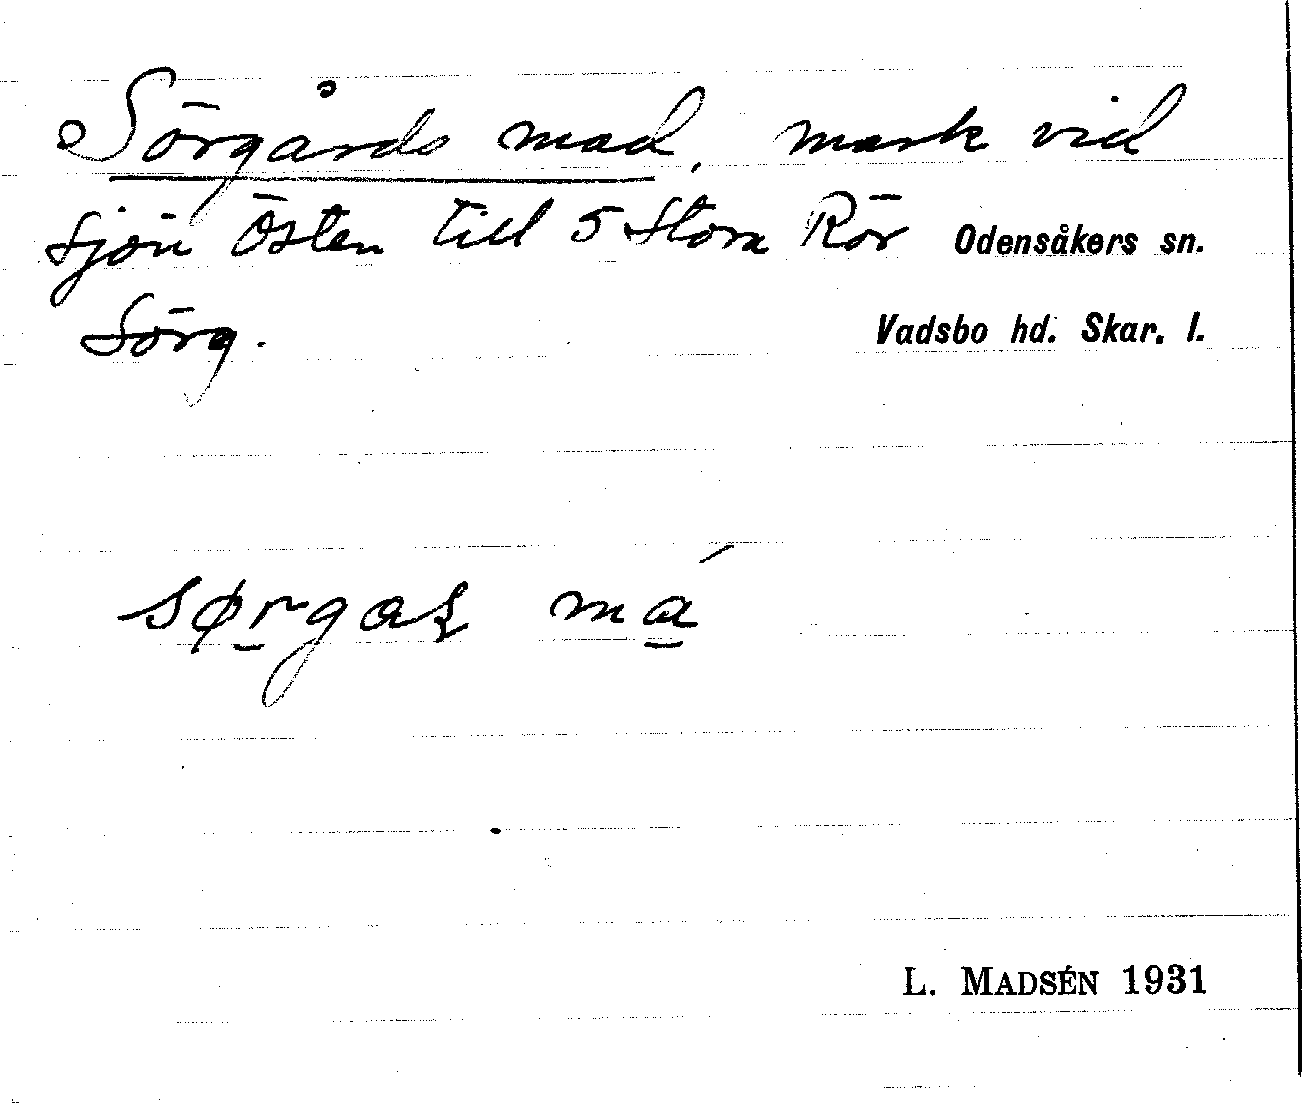 Sörgårds mad, mark vid
sjön Östen till 5 Stora Rör Odensåkers sn.
Sörg. Vadsbo hd. Skar. l.
sørgaʂ má
L. MADSÉN 1931